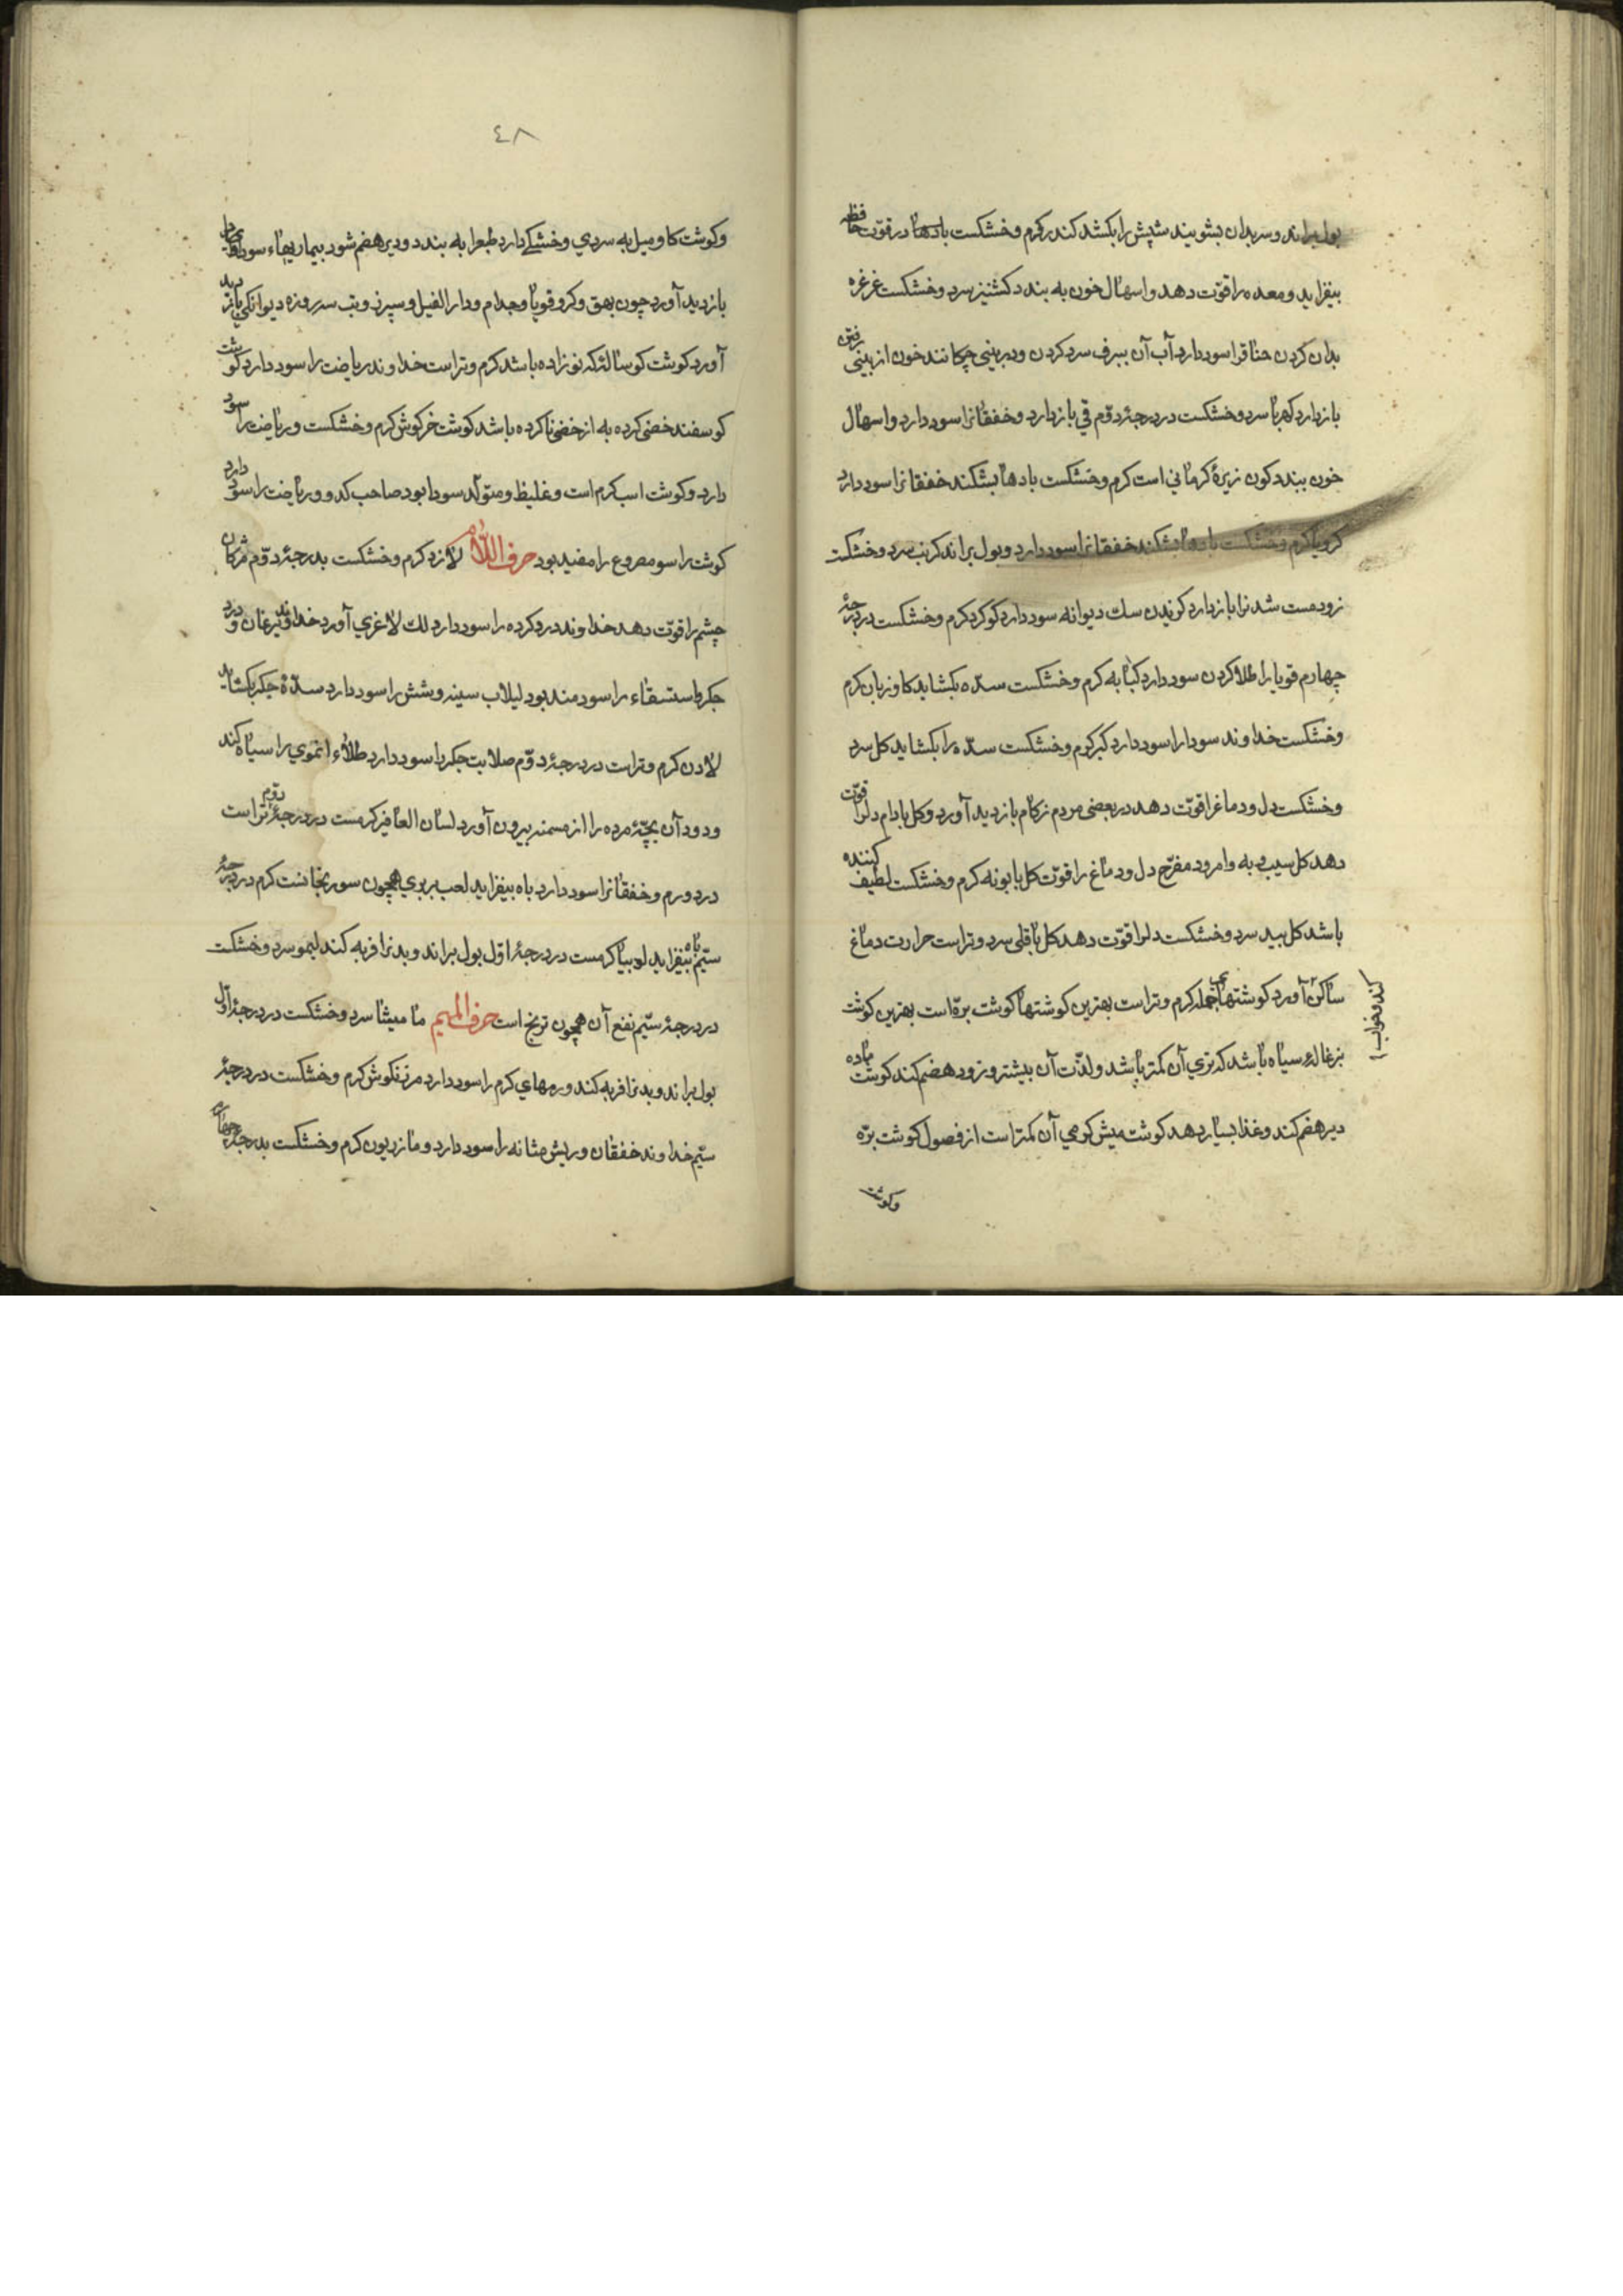 بول براند و سر بدان بشویند شپش را بکشد کندر کرم و خشکست بادها در قوّت حافظه
بیفزاید و معده را قوّت دهد و اسهال خون به بندد کشنیز سرد و خشکست غرغره
بدان کردن خناقرا سود دارد آب آن ببرف سرد کردن و در بینی چکانند خون از بینی رفتن
باز دارد کهربا سرد و خشکست در درجهٔ دوّم قي باز دارد و خفقانرا سود دارد و اسهال
خون ببندد کمون زیرهٔ کرماني است کرم و خشکست بادها بشکند خفقانرا سود دارد
کرویا کرم و خشکست بادها بشکند خفقانرا سود دارد و بول براند کرنب سرد و خشکست
زود مست شدنرا باز دارد کزیدن سك دیوانه سود دارد کوکرد کرم و خشکست در درجهٔ
چهارم قوبا را طلا کردن سود دارد کبابه کرم و خشکست سدّه بکشاید کاوزبان کرم
و خشکست خداوند سودا را سود دارد کبر کرم و خشکست سدّه را بکشاید کل سرد
و خشکست دل و دماغرا قوّت دهد در بعضي مردم زکام بازدید آورد و کل بادام دلرا قوّت
دهد کل سیب و به و امرود مفرّح دل و دماغ را قوّت کل بابونه کرم و خشکست لطیف کننده
باشد کل بید سرد و خشکست دلرا قوّت دهد کل باقلي سرد و تراست حرارت دماغ
ساکن کند و خواب آورد کوشتهاي جمله کرم و تراست بهترین کوشتها کوشت برّه است بهترین کوشت
بزغالهٔ سیاه باشد که تري آن کمتر باشد و لذّت آن بیشتر و زود هضم کند کوشت ماده
دیر هضم کند و غذا بسیار دهد کوشت میش کرمي آن کمتراست از فصول کوشت برّه
و کوشت
٤٨
و کوشت کاو میل به سردي و خشکي دارد طبع را به بندد و دیر هضم شود بیماریهاء سوداوي
بازدید آورد چون بهق و کر و قوبا و جذام و دار الفیل و سپرز و تب سه روزه دیوانکي بازدید
آورد کوشت کوساله که نو زاده باشد کرم و تراست خداوند ریاضت را سود دارد کوشت
کوسفند خصي کرده به از خصي ناکرده باشد کوشت خرکوش کرم و خشکست و ریاضت را سود
دارد و کوشت اسب کرم است و غلیظ و متولّد سودا بود صاحب کد و ریاضت را سود دارد
کوشت راسو مصروع را مفید بود حرف اللام لازورد کرم و خشکست بدرجهٔ دوّم مژکان
چشم را قوّت دهد خداوند درد کرده را سود دارد لك لاغري آورد خداوند یرقان و درد
جکر و استسقاء را سودمند بود لبلاب سینه و شش را سود دارد سدّهٔ جکر بکشاید
لادن کرم و تراست در درجهٔ دوّم صلابت جکر را سود دارد طلاء او موي را سیاه کند
و دود آن بچّهٔ مرده را از مسمنه بیرون آورد لسان العصافیر کرمست در درجهٔ دوّم تراست
درد ورم و خفقانرا سود دارد باه بیفزاید لعب بربري همچون سورنجانست کرم در درجهٔ
سیّم باه بیفزاید لوبیا کرمست در درجهٔ اوّل بول براند و بدنرا فربه کند لیمو سرد و خشکست
در درجهٔ سیّم نفع آن همچون ترنج است حرف المیم مامیثا سرد و خشکست در درجهٔ اوّل
بول براند و بدنرا فربه کند ورمهاي کرم را سود دارد مرزنکوش کرم و خشکست در درجهٔ
سیّم خداوند خفقان و ریش مثانه را سود دارد و مازریون کرم و خشکست بدرجهٔ چهارم